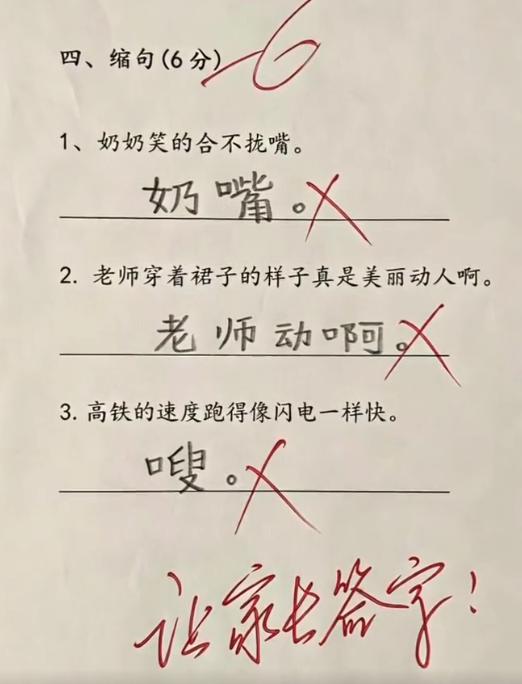 四、缩句(6分) -6
1、奶奶笑的合不拢嘴。
奶嘴。
2. 老师穿着裙子的样子真是美丽动人啊。
老师动啊。
3. 高铁的速度跑得像闪电一样快。
嗖。
让家长签字!